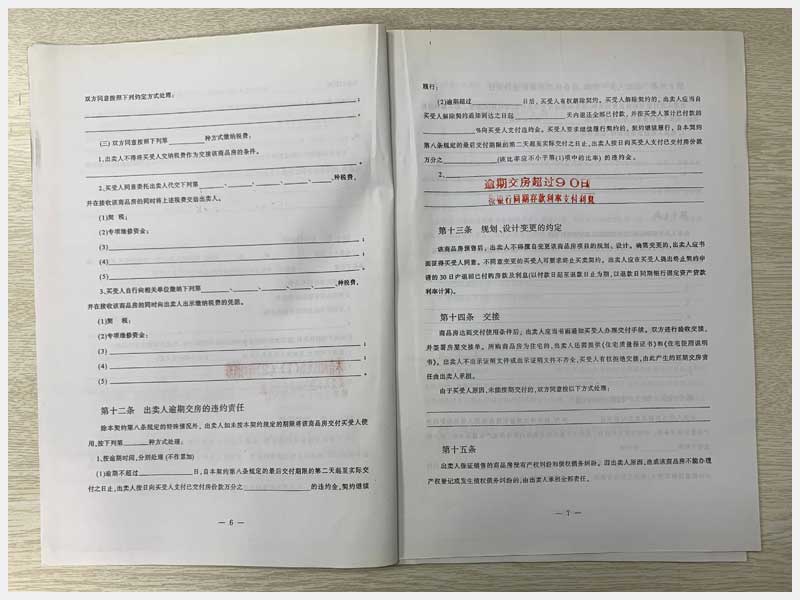 双方同意按照下列约定方式处理:
;
。
(三) 双方同意按照下列第 种方式缴纳税费:
1、出卖人不得将买受人交纳税费作为交接该商品房的条件。
。
2、买受人同意委托出卖人代交下列第 、 、 、 、 、 种税费,
并在接收该商品房的同时将上述税费交给出卖人。
(1)契 税;
(2)专项维修资金;
(3) ;
(4) ;
(5) 。
3、买受人自行向相关单位缴纳下列第 、 、 、 、 、 种税费,
并在接收该商品房的同时向出卖人出示缴纳税费的凭据。
(1)契 税;
(2)专项维修资金;
(3) ;
(4) ;
(5) 。
第十二条 出卖人逾期交房的违约责任
除本契约第八条规定的特殊情况外,出卖人如未按本契约规定的期限将该商品房交付买受人使
用,按下列第 种方式处理:
1、按逾期时间,分别处理(不作累加)
(1)逾期不超过 日,自本契约第八条规定的最后交付期限的第二天起至实际交
付之日止,出卖人按日向买受人支付已交付房价款万分之 的违约金,契约继续
— 6 —
履行;
(2)逾期超过 日后,买受人有权解除契约。买受人解除契约的,出卖人应当自
买受人解除契约通知到达之日起 天内退还全部已付款,并按买受人累计已付款的
%向买受人支付违约金。买受人要求继续履行契约的,契约继续履行,自本契约
第八条规定的最后交付期限的第二天起至实际交付之日止,出卖人按日向买受人支付已交付房价款
万分之 (该比率应不小于第(1)项中的比率) 的违约金。
2、
逾期交房超过90日
按银行同期存款利率支付利息
第十三条 规划、设计变更的约定
该商品房预售后,出卖人不得擅自变更该商品房项目的规划、设计。确需变更的,出卖人应书
面征得买受人同意。不同意变更的买受人可要求终止买卖契约。出卖人应在买受人提出终止契约申
请的30日内退回已付购房款及利息(以付款日起至退款日止为期,以退款日同期银行固定资产贷款
利率计算)。
第十四条 交接
商品房达到交付使用条件后,出卖人应当书面通知买受人办理交付手续。双方进行验收交接,
并签署房屋交接单。所购商品房为住宅的,出卖人还需提供《住宅质量保证书》和《住宅使用说明
书》。出卖人不出示证明文件或出示证明文件不齐全,买受人有权拒绝交接,由此产生的延期交房责
任由出卖人承担。
由于买受人原因,未能按期交付的,双方同意按以下方式处理:
第十五条
出卖人保证销售的商品房没有产权纠纷和债权债务纠纷。因出卖人原因,造成该商品房不能办理
产权登记或发生债权债务纠纷的,由出卖人承担全部责任。
— 7 —